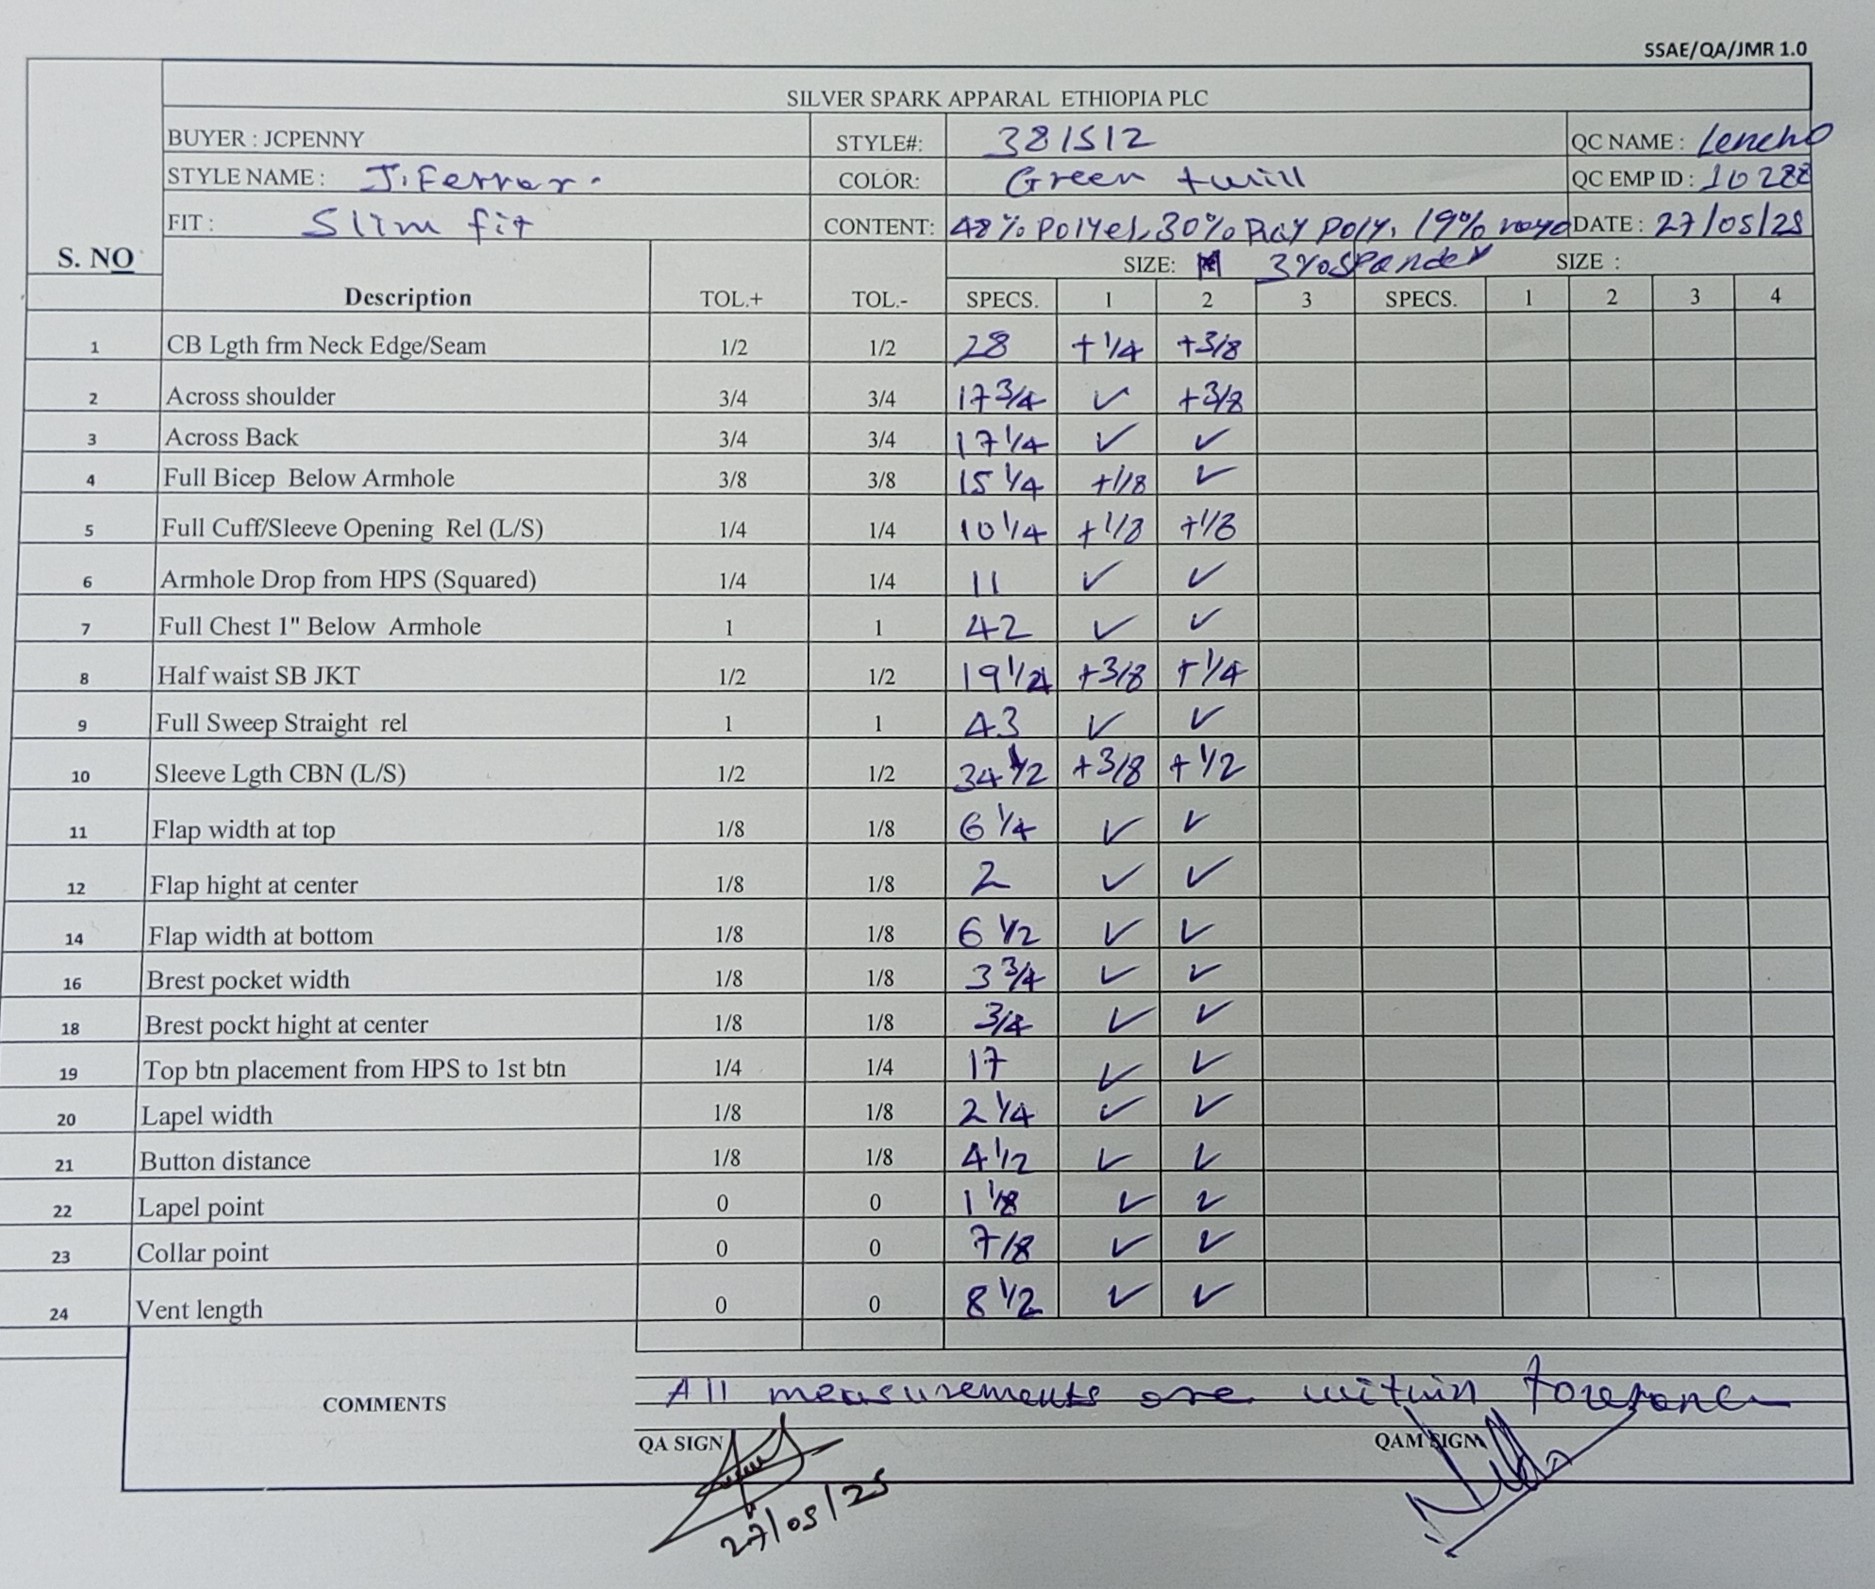 SSAE/QA/JMR 1.0
SILVER SPARK APPARAL ETHIOPIA PLC
BUYER : JCPENNY STYLE#: 381512 QC NAME : Lencho
STYLE NAME : J.Ferrar. COLOR: Green twill QC EMP ID : 10288
FIT : Slim fit CONTENT: 48% Polyes, 30% Poly, 19% DATE : 27/05/25
S. NO SIZE: M 3% Spandex SIZE :
Description TOL.+ TOL.- SPECS. 1 2 3 SPECS. 1 2 3 4
1 CB Lgth frm Neck Edge/Seam 1/2 1/2 28 +1/4 +3/8
2 Across shoulder 3/4 3/4 17 3/4 ✓ +3/8
3 Across Back 3/4 3/4 17 1/4 ✓ ✓
4 Full Bicep Below Armhole 3/8 3/8 15 1/4 +1/8 ✓
5 Full Cuff/Sleeve Opening Rel (L/S) 1/4 1/4 10 1/4 +1/8 +1/8
6 Armhole Drop from HPS (Squared) 1/4 1/4 11 ✓ ✓
7 Full Chest 1" Below Armhole 1 1 42 ✓ ✓
8 Half waist SB JKT 1/2 1/2 19 1/2 +3/8 +1/4
9 Full Sweep Straight rel 1 1 43 ✓ ✓
10 Sleeve Lgth CBN (L/S) 1/2 1/2 34 1/2 +3/8 +1/2
11 Flap width at top 1/8 1/8 6 1/4 ✓ ✓
12 Flap hight at center 1/8 1/8 2 ✓ ✓
14 Flap width at bottom 1/8 1/8 6 1/2 ✓ ✓
16 Brest pocket width 1/8 1/8 3 3/4 ✓ ✓
18 Brest pockt hight at center 1/8 1/8 3/4 ✓ ✓
19 Top btn placement from HPS to 1st btn 1/4 1/4 17 ✓ ✓
20 Lapel width 1/8 1/8 2 1/4 ✓ ✓
21 Button distance 1/8 1/8 4 1/2 ✓ ✓
22 Lapel point 0 0 1 1/8 ✓ ✓
23 Collar point 0 0 7/8 ✓ ✓
24 Vent length 0 0 8 1/2 ✓ ✓
COMMENTS All measurements are within tolerance
QA SIGN QAM SIGN
27/05/25